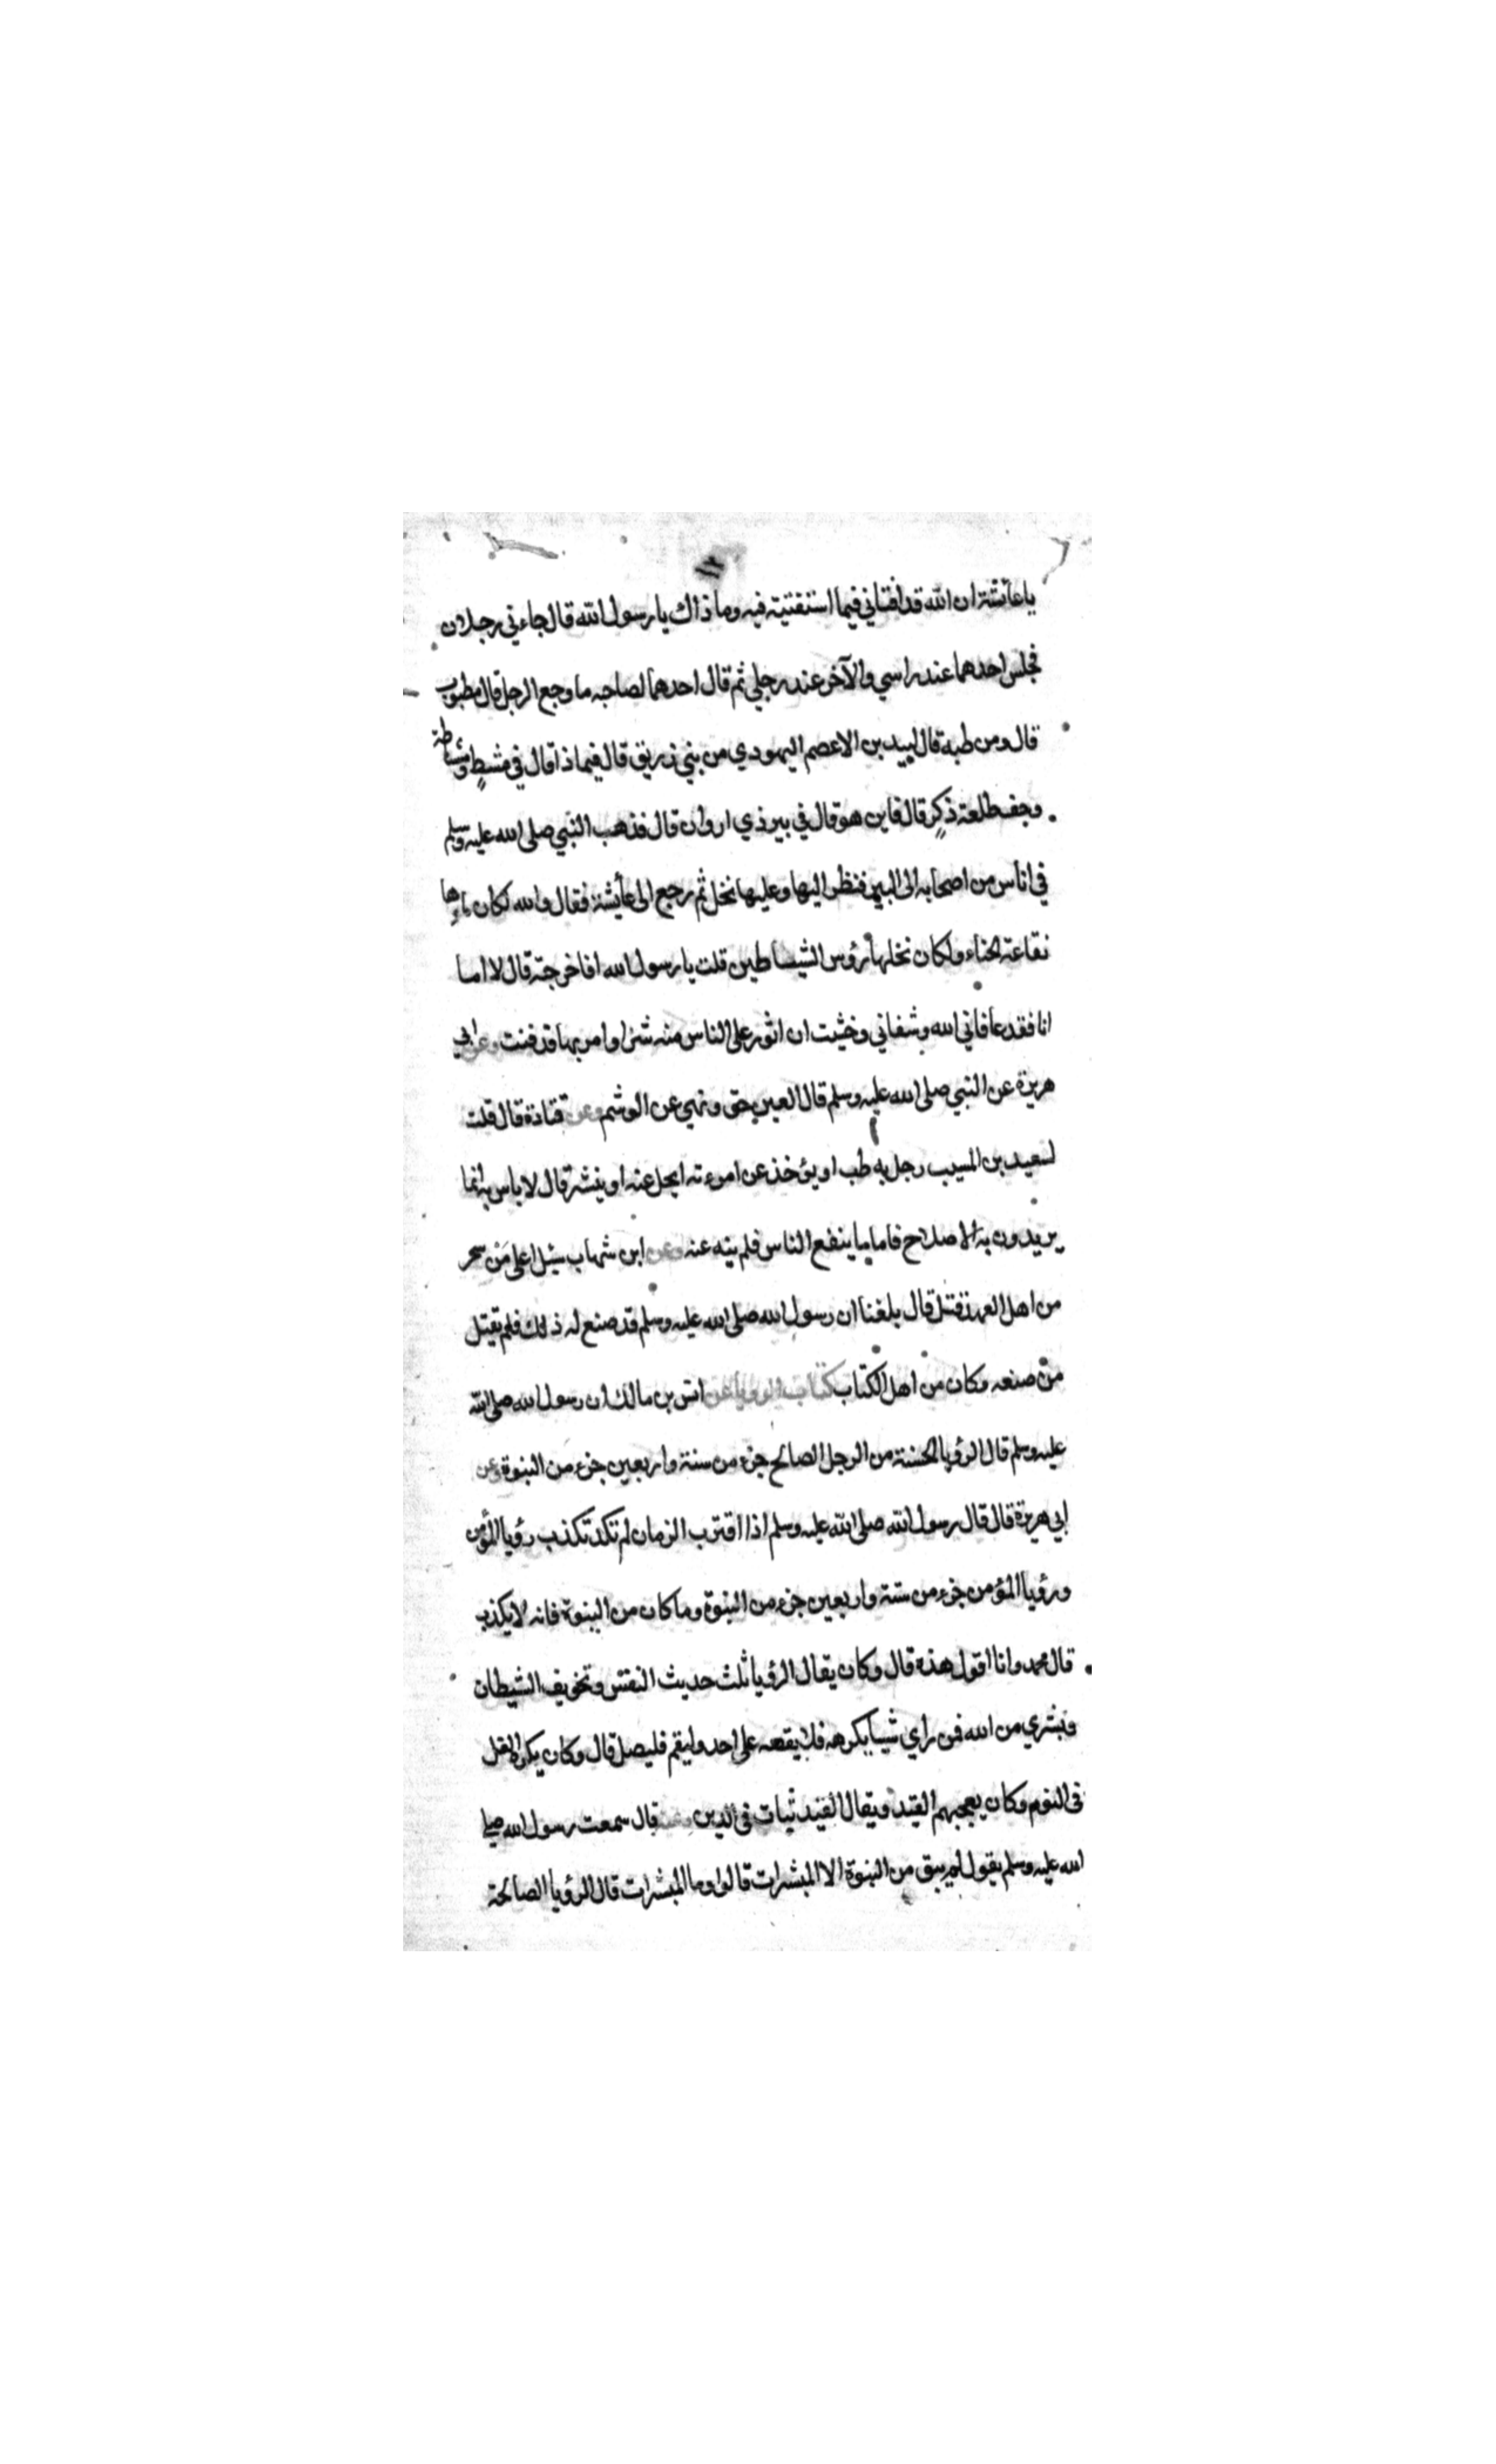 ياعائشة ان الله قد افتاني فيما استفتيته فيه وما ذاك يا رسول الله قال جاءني رجلان
فجلس احدهما عند راسي والآخر عند رجلي ثم قال احدهما لصاحبه ما وجع الرجل قال مطبوب
قال ومن طبه قال لبيد بن الاعصم اليهودي من بني زريق قال فيما ذا قال في مشط ومشاطة
وجف طلعة ذكر قال فاين هو قال في بير ذي اروان قال فذهب النبي صلى الله عليه وسلم
في اناس من اصحابه الى البير فنظر اليها وعليها نخل ثم رجع الى عايشة فقال والله لكان ماءها
نقاعة الحناء ولكان نخلها رؤس الشياطين قلت يا رسول الله افاخرجته قال لا اما
انا فقد عافاني الله وشفاني وخشيت ان اثور على الناس منه شرا وامر بها فدفنت وعن ابي
هريرة عن النبي صلى الله عليه وسلم قال العين حق ونهي عن الوشم وعن قتادة قال قلت
لسعيد بن المسيب رجل به طب او يؤخذ عن امرءته ايحل عنه او ينشر قال لا باس به انما
يريدون به الاصلاح فاما ما ينفع الناس فلم ينه عنه وعن ابن شهاب سئل اعلى من سحر
من اهل العهد قتل قال بلغنا ان رسول الله صلى الله عليه وسلم قد صنع له ذلك فلم يقتل
من صنعه وكان من اهل الكتاب كتاب الرويا عن انس بن مالك ان رسول الله صلى الله
عليه وسلم قال الرؤيا الحسنة من الرجل الصالح جزء من ستة واربعين جزء من النبوة وعن
ابي هريرة قال قال رسول الله صلى الله عليه وسلم اذا اقترب الزمان لم تكد تكذب رؤيا المؤمن
ورؤيا المؤمن جزء من ستة واربعين جزء من النبوة وما كان من النبوة فانه لا يكذب
قال محمد وانا اقول هذه قال وكان يقال الرؤيا ثلث حديث النفس وتخويف الشيطان
وبشري من الله فمن راي شيئا يكرهه فلا يقصه على احد وليقم فليصل قال وكان يكره الغل
في النوم وكان يعجبهم القيد ويقال القيد ثبات في الدين وعنه قال سمعت رسول الله صلى
الله عليه وسلم يقول لم يبق من النبوة الا المبشرات قالوا وما المبشرات قال الرؤيا الصالحة